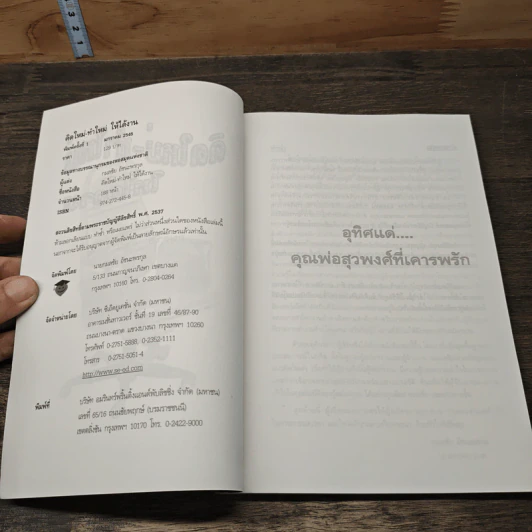 คิดใหม่-ทำใหม่ ให้ได้งาน
พิมพ์ครั้งที่ 1 มกราคม 2548
ราคา 120 บาท
ข้อมูลทางบรรณานุกรมของหอสมุดแห่งชาติ
ผู้แต่ง
ชื่อหนังสือ คิดใหม่-ทำใหม่ ให้ได้งาน
จำนวนหน้า 160 หน้า
ISBN
สงวนลิขสิทธิ์ตามพระราชบัญญัติลิขสิทธิ์ พ.ศ. 2537
จัดพิมพ์โดย
กรุงเทพฯ 10190 โทร. 0-2804-0264
จัดจำหน่ายโดย บริษัท ซีเอ็ดยูเคชั่น จำกัด (มหาชน)
อาคารเนชั่นทาวเวอร์ ชั้นที่ 19 เลขที่ 46/87-90
ถนนบางนา-ตราด แขวงบางนา กรุงเทพฯ 10260
โทรศัพท์ 0-2751-5888, 0-2352-1111
โทรสาร 0-2751-5051-4
http://www.se-ed.com
พิมพ์ที่ บริษัท อมรินทร์พริ้นติ้งแอนด์พับลิชชิ่ง จำกัด (มหาชน)
เลขที่ 65/16 ถนนชัยพฤกษ์ (บรมราชชนนี)
เขตตลิ่งชัน กรุงเทพฯ 10170 โทร. 0-2422-9000
อุทิศแด่....
คุณพ่อสุวพงศ์ที่เคารพรัก
3
2
1